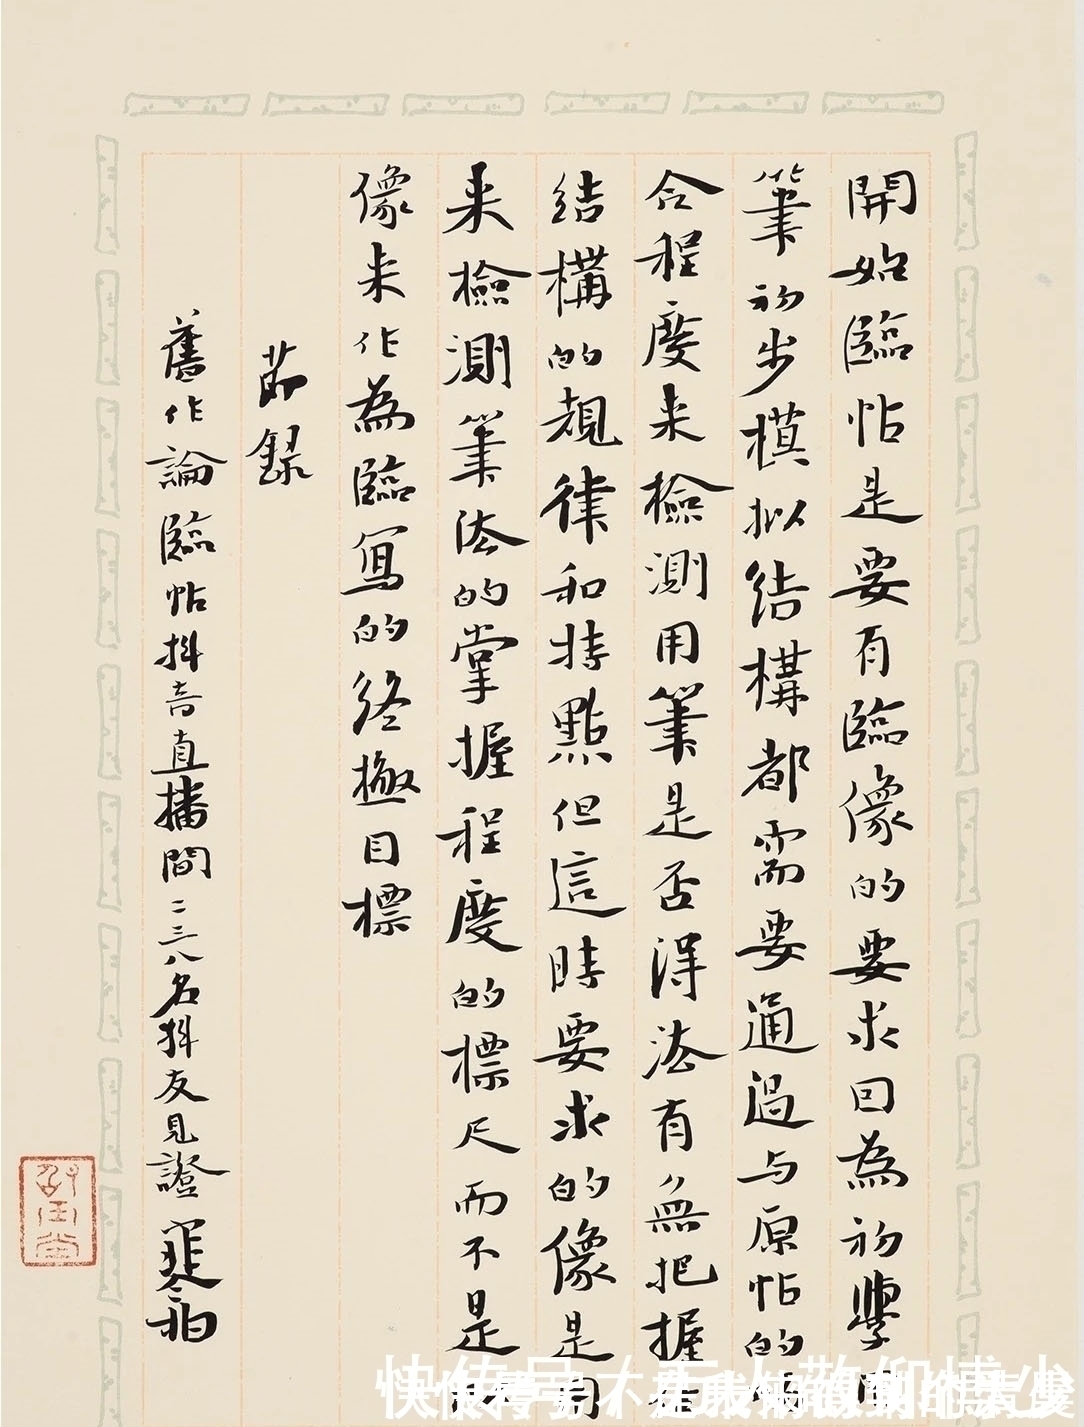 開始臨帖是要有臨像的要求因為初學
筆初步模拟結構都需要通過与原帖的
合程度来檢測用筆是否得法有無把握
結構的規律和特點但這時要求的像是用
来檢測筆法的掌握程度的標尺而不是
像来作為臨寫的終極目標
節錄
舊作論臨帖抖音直播間二三八名抖友見證